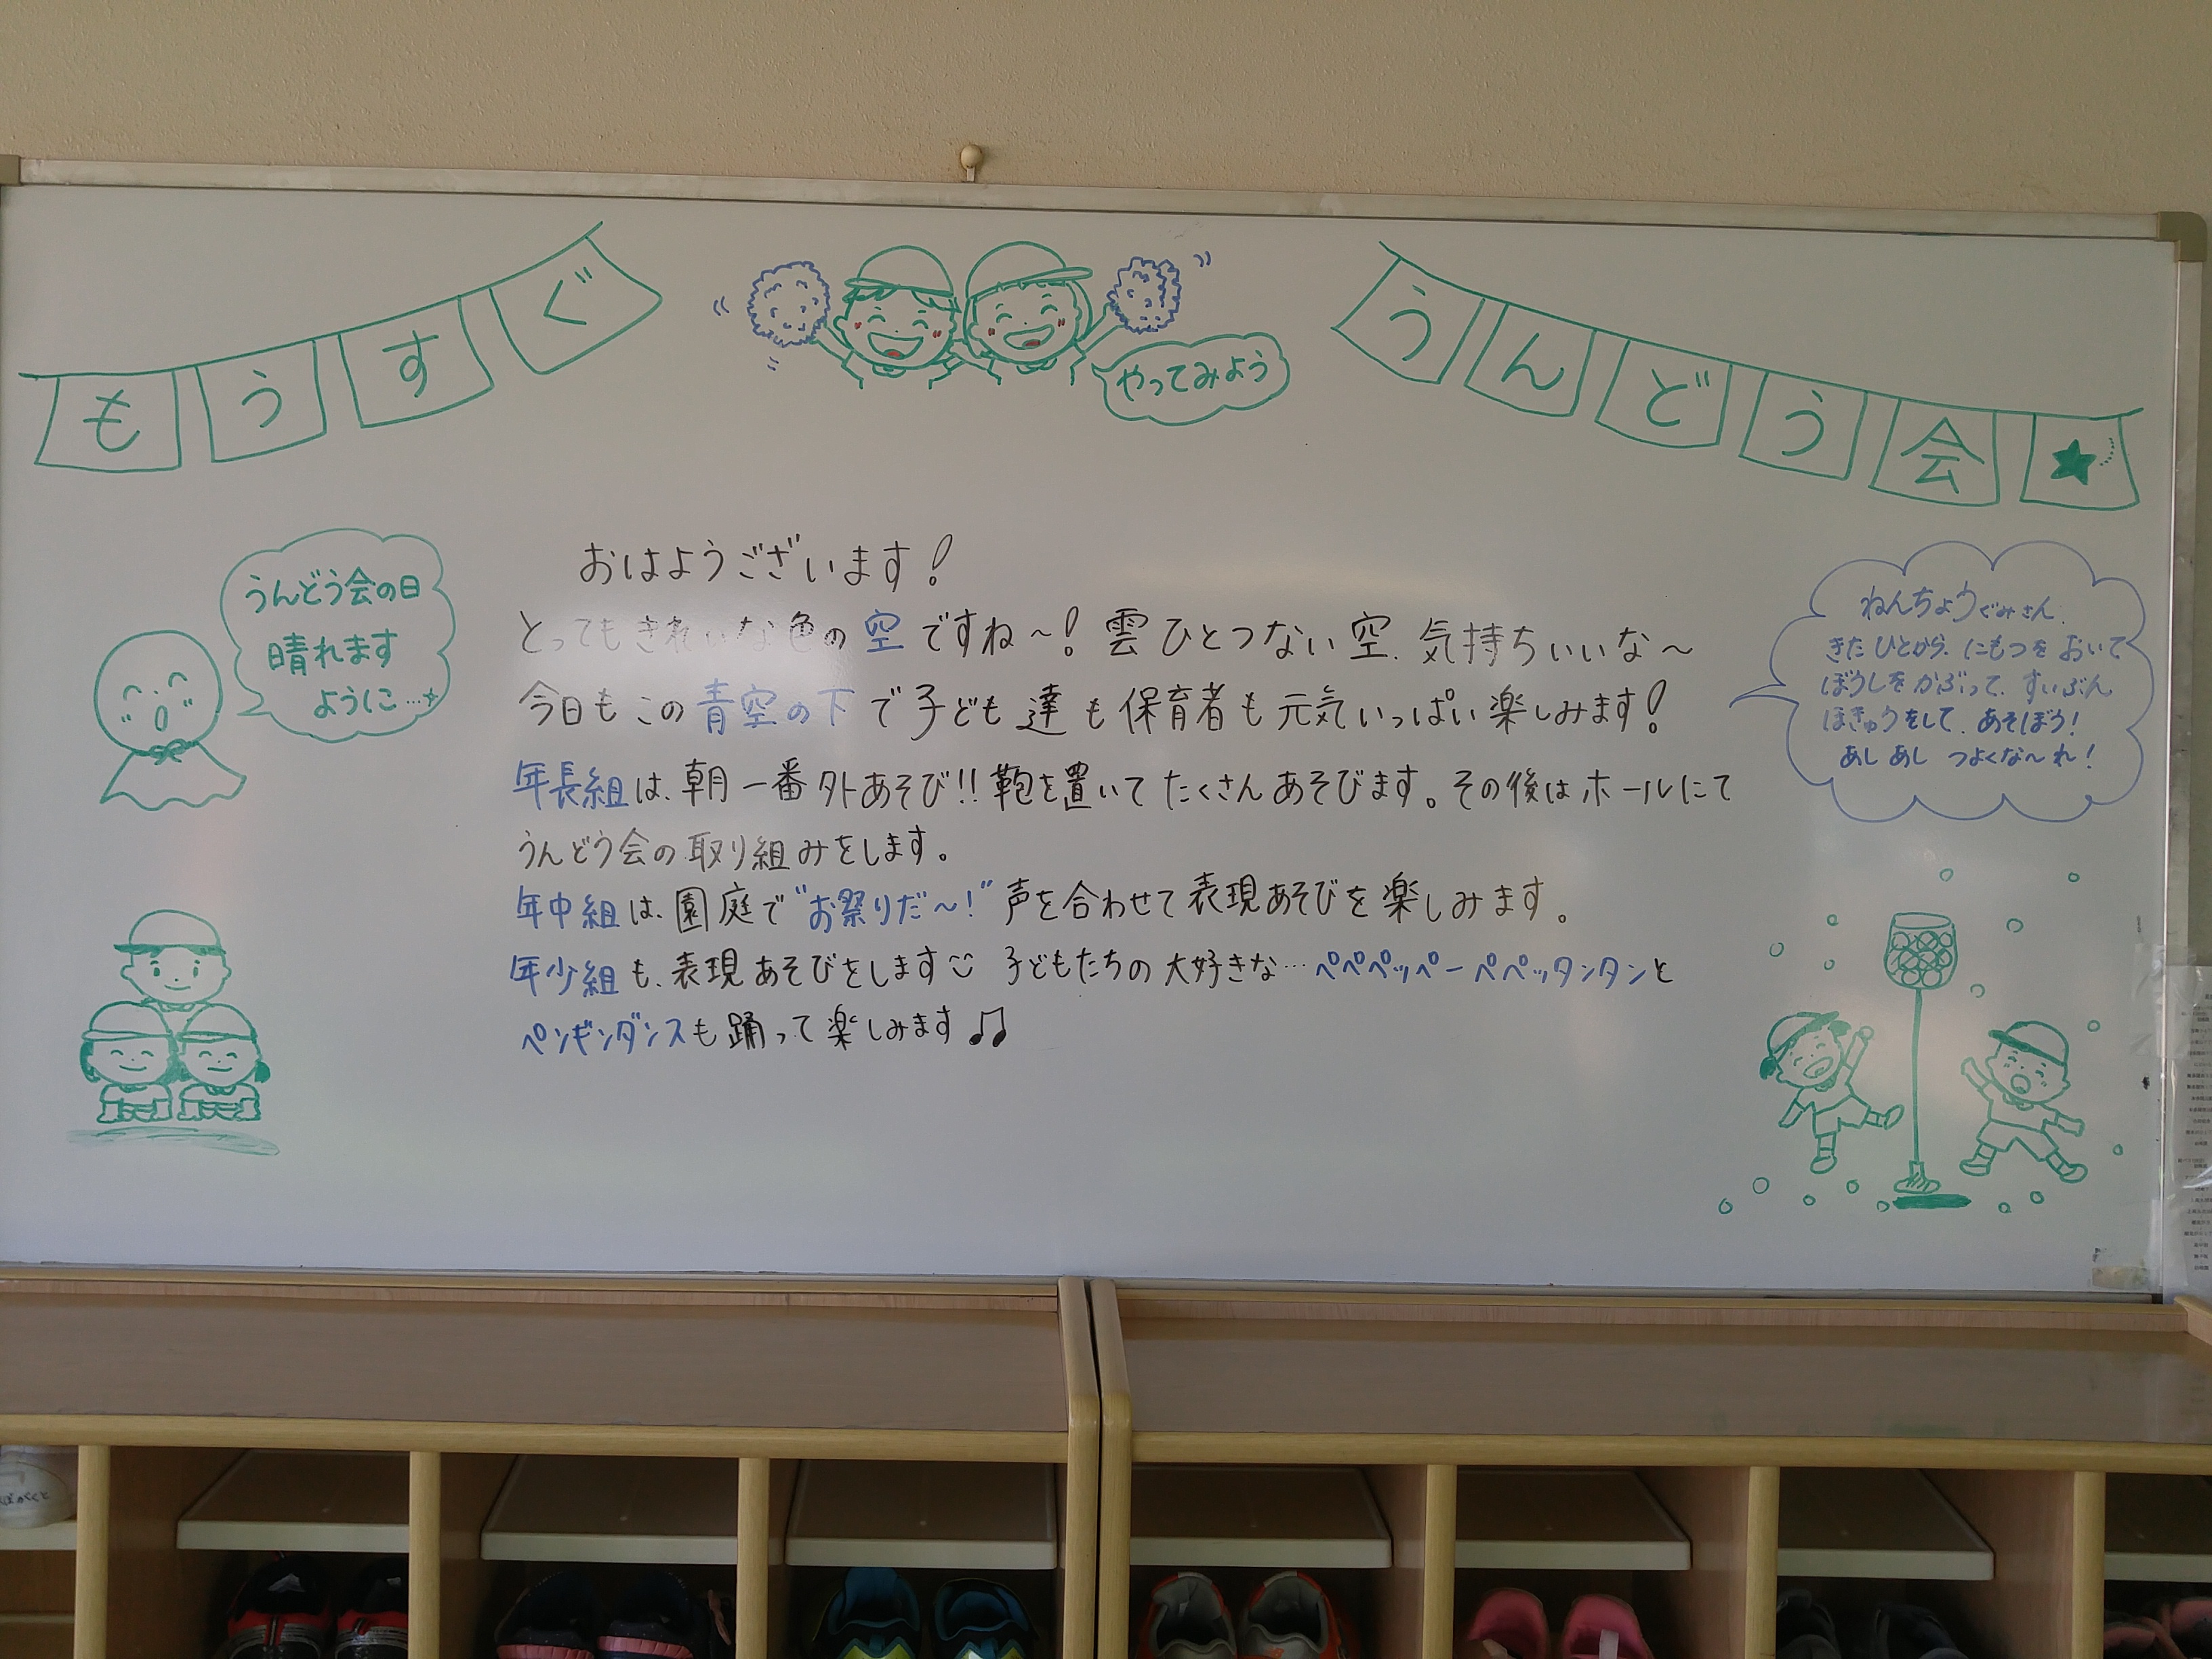 もうすぐ
やってみよう
うんどう会★
うんどう会の日
晴れます
ように…
おはようございます!
とってもきれいな色の空ですね~!雲ひとつない空、気持ちいいな~
今日もこの青空の下で子ども達も保育者も元気いっぱい楽しみます!
年長組は、朝一番外あそび!!鞄を置いてたくさんあそびます。その後はホールにて
うんどう会の取り組みをします。
年中組は、園庭で"お祭りだ~!"声を合わせて表現あそびを楽しみます。
年少組も、表現あそびをします 子どもたちの大好きな…ペペペッペーペペッタンタンと
ペンギンダンスも踊って楽しみます♫
ねんちょうぐみさん、
きたひとから、にもつをおいて
ぼうしをかぶって、すいぶん
ほきゅうをして、あそぼう!
あしあし つよくな~れ!